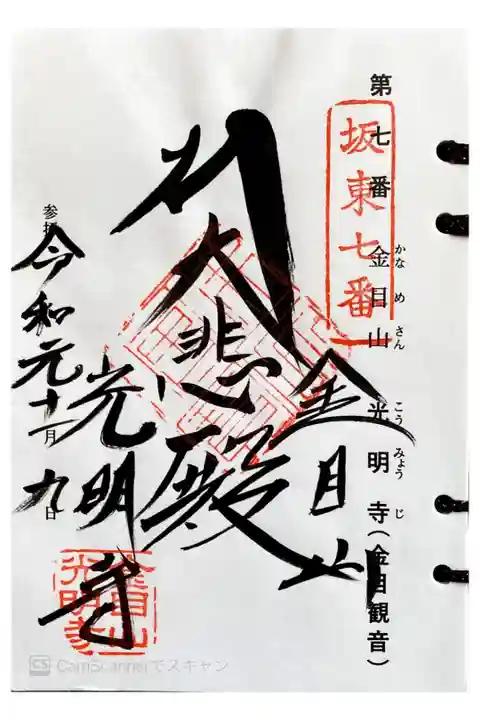 第七番 金目山 光明寺(金目観音)
かな め さん こう みょう じ
坂東七番
金目山
大悲殿
光明寺
参拝
令和元年十一月九日
金目山
光明寺
CS CamScannerでスキャン